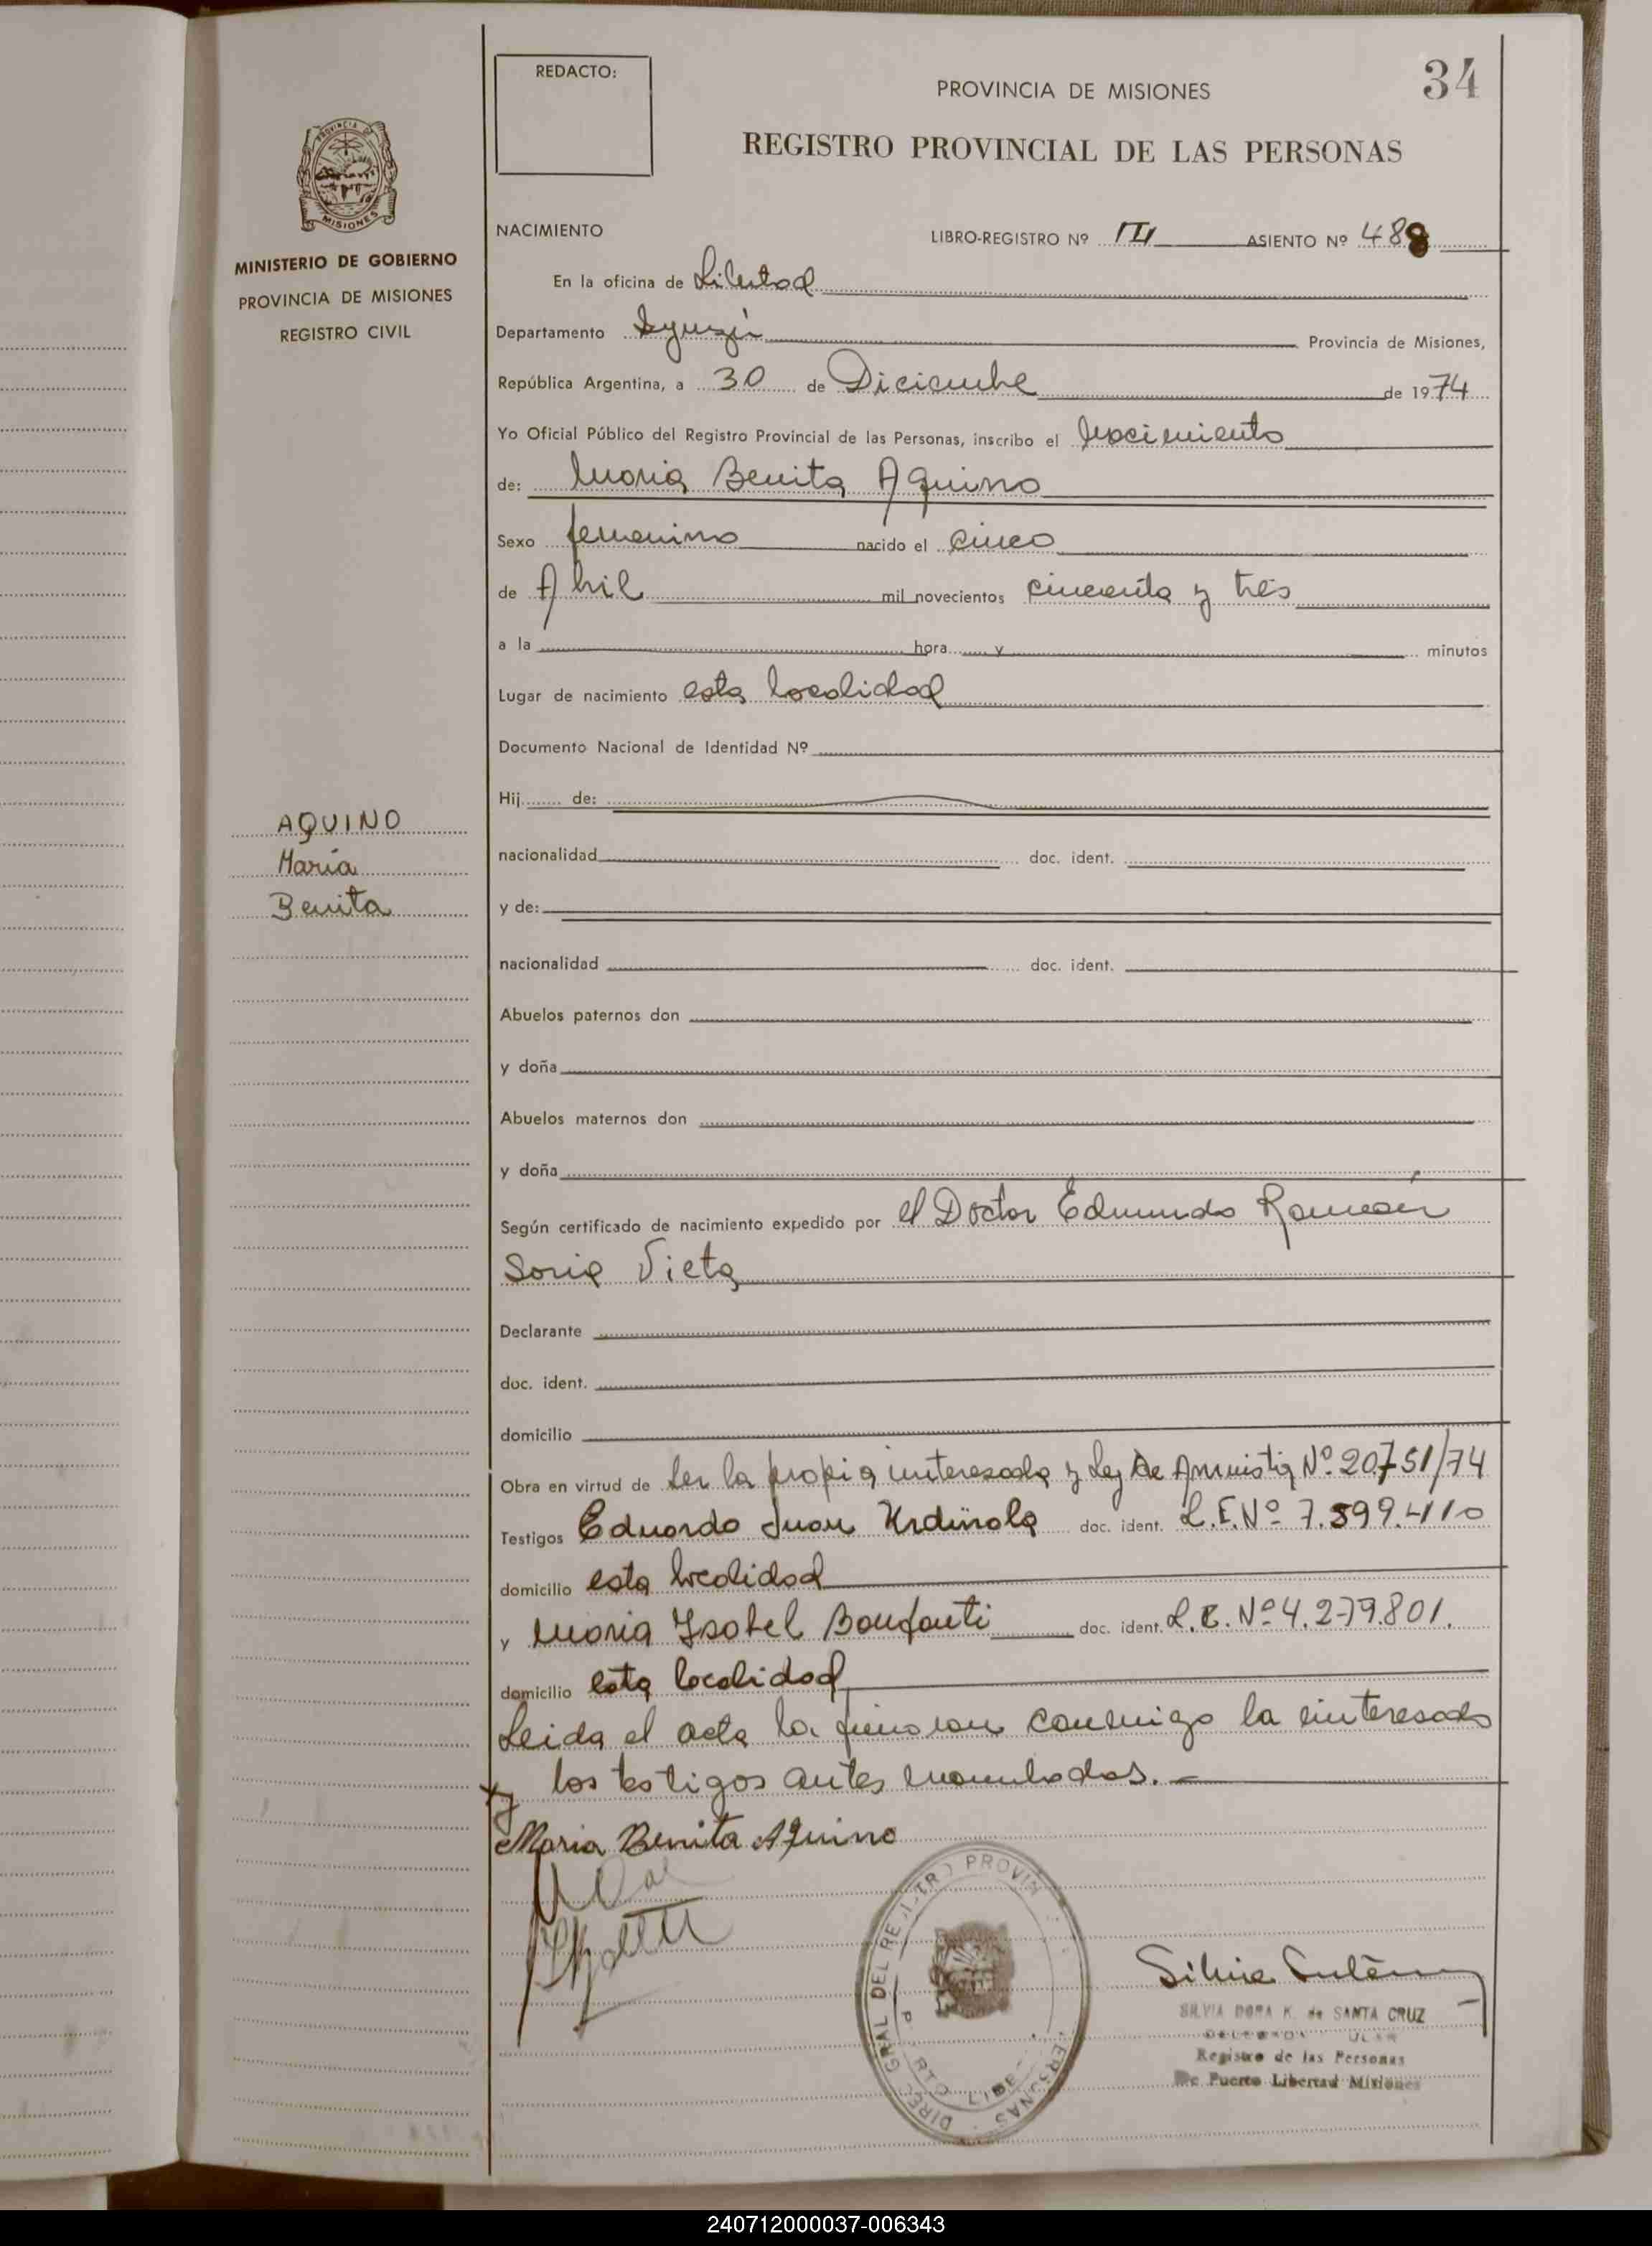 34
REDACTO:
PROVINCIA DE MISIONES
REGISTRO PROVINCIAL DE LAS PERSONAS
PROVINCIA DE
MISIONES
MINISTERIO DE GOBIERNO
PROVINCIA DE MISIONES
REGISTRO CIVIL
AQUINO
María
Benita
NACIMIENTO LIBRO-REGISTRO Nº III ASIENTO Nº 488
En la oficina de Libertad
Departamento Iguazú Provincia de Misiones,
República Argentina, a 30 de Diciembre de 1974
Yo Oficial Público del Registro Provincial de las Personas, inscribo el Nacimiento
de: Maria Benita Aquino
Sexo femenino nacido el cinco
de Abril mil novecientos cincuenta y tres
a la hora y minutos
Lugar de nacimiento esta localidad
Documento Nacional de Identidad Nº
Hij de:
nacionalidad doc. ident.
y de:
nacionalidad doc. ident.
Abuelos paternos don
y doña
Abuelos maternos don
y doña
Según certificado de nacimiento expedido por el Doctor Edmundo Román
Soria Vieta
Declarante
doc. ident.
domicilio
Obra en virtud de ser la propia interesada y Ley de Amnistia Nº 20751/74
Testigos Eduardo Juan Urdinola doc. ident. L.E.Nº 7.599.410
domicilio esta localidad
y Maria Ysabel Bonfanti doc. ident. L.C. Nº 4.279.801.
domicilio esta localidad
Leida el acta la firman conmigo la interesada
y los testigos antes nombrados.-
Maria Benita Aquino
DIREC. GRAL DEL REGISTRO PROVIN PERSONAS
PTO LIBE
SILVIA DORA K. de SANTA CRUZ
Registro de las Personas
De Puerto Libertad Misiones
240712000037-006343